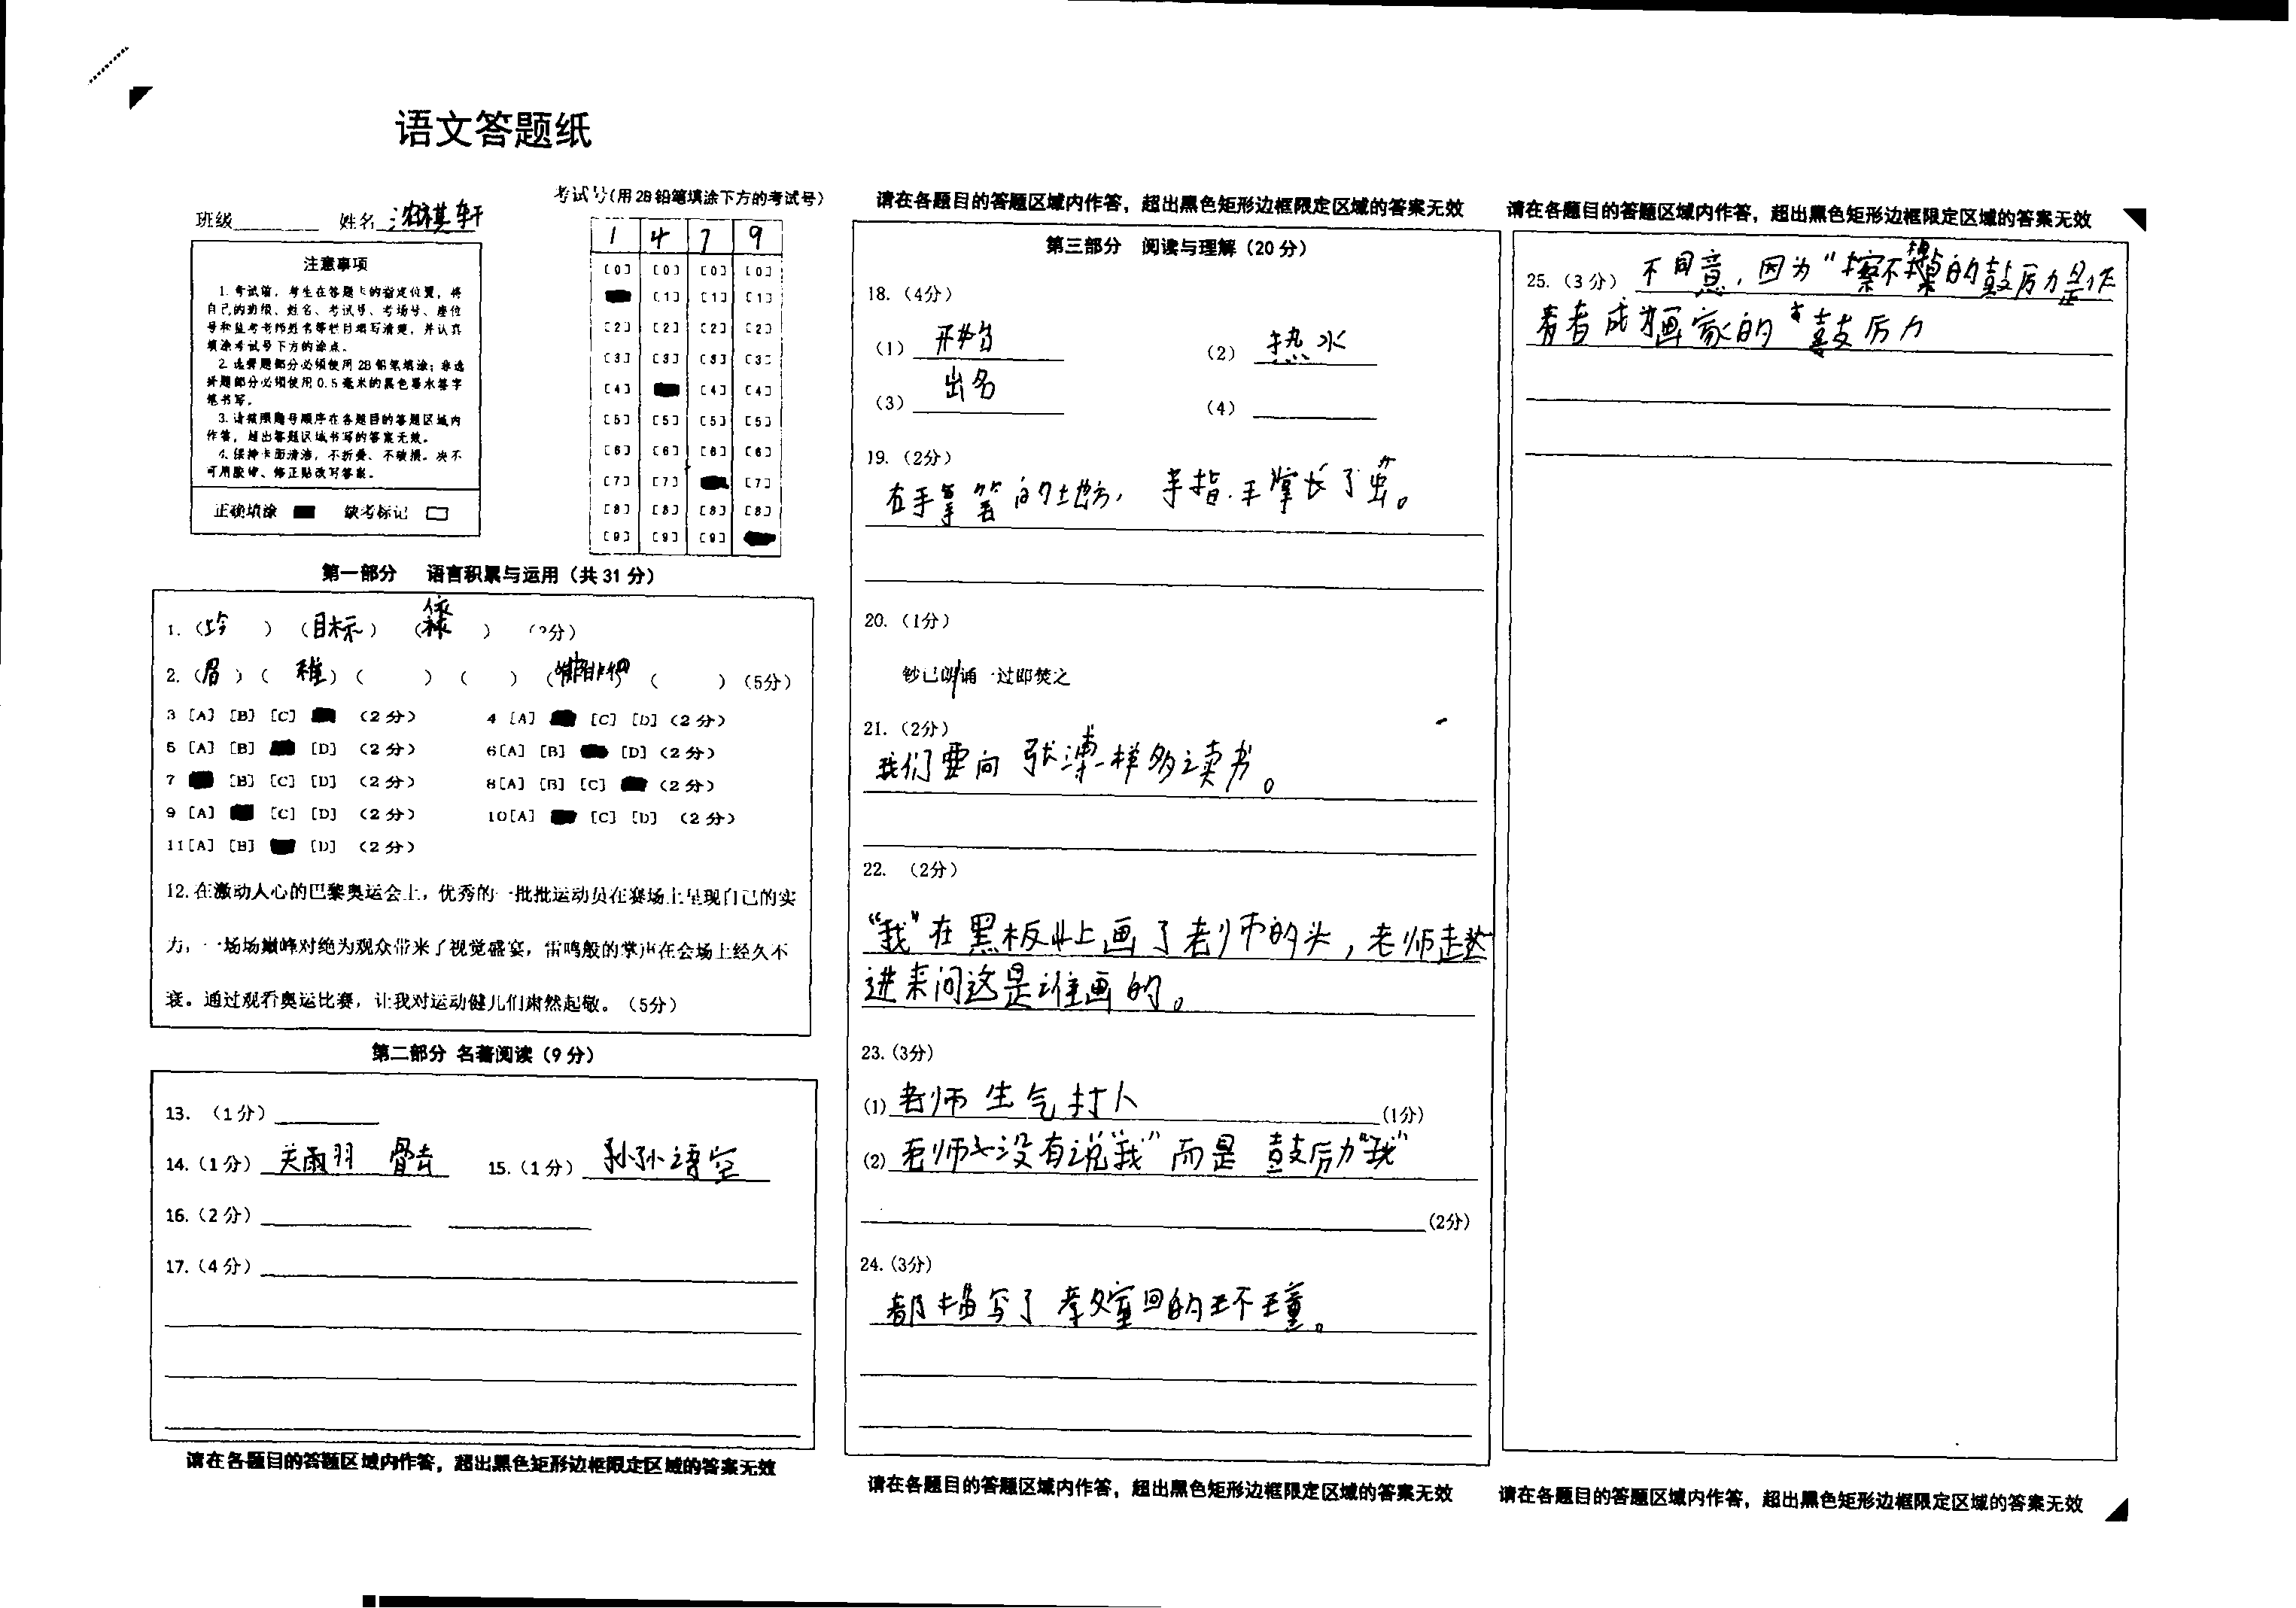 语文答题纸
班级 姓名 祺轩
考试号(用2B铅笔填涂下方的考试号)
1 4 7 9
[0] [0] [0] [0]
[1] [1] [1]
[2] [2] [2] [2]
[3] [3] [3] [3]
[4] [4] [4]
[5] [5] [5] [5]
[6] [6] [6] [6]
[7] [7] [7]
[8] [8] [8] [8]
[9] [9] [9]
注意事项
1. 考试前，考生在答题卡的指定位置，将
自己的班级、姓名、考试号、考场号、座位
号和监考老师姓名等栏目填写清楚，并认真
填涂考试号下方的涂点。
2. 选择题部分必须使用2B铅笔填涂；非选
择题部分必须使用0.5毫米的黑色墨水签字
笔书写。
3. 请按照题号顺序在各题目的答题区域内
作答，超出答题区域书写的答案无效。
4. 保持卡面清洁，不折叠、不破损。决不
可用胶带、修正贴改写答案。
正确填涂 缺考标记
第一部分 语言积累与运用（共31分）
1.（ ）（目标）（ ）（ 分）
2.（眉）（稚）（ ）（ ）（ ）（ ）（5分）
3 [A] [B] [C] （2分） 4 [A] [C] [D]（2分）
5 [A] [B] [D] （2分） 6[A] [B] [D]（2分）
7 [B] [C] [D] （2分） 8[A] [B] [C] （2分）
9 [A] [C] [D] （2分） 10[A] [C] [D] （2分）
11[A] [B] [D] （2分）
12.在激动人心的巴黎奥运会上，优秀的一批批运动员在赛场上呈现自己的实
力，一场场巅峰对绝为观众带来了视觉盛宴，雷鸣般的掌声在会场上经久不
衰。通过观看奥运比赛，让我对运动健儿们肃然起敬。（5分）
第二部分 名著阅读（9分）
13.（1分）
14.（1分） 关雨羽 骨吉 15.（1分） 孙悟空
16.（2分）
17.（4分）
请在各题目的答题区域内作答，超出黑色矩形边框限定区域的答案无效
请在各题目的答题区域内作答，超出黑色矩形边框限定区域的答案无效
第三部分 阅读与理解（20分）
18.（4分）
（1） 开始 （2） 热水
（3） 出名 （4）
19.（2分）
右手拿笔的地方，手指、手掌长了茧。
20.（1分）
钞已朗/诵一过即焚之
21.（2分）
我们要向张溥一样多读书。
22. （2分）
“我”在黑板上画了老师的头，老师走
进来问这是谁画的。
23.（3分）
(1) 老师生气打人 (1分)
(2) 老师没有说“我”而是鼓厉“我”
(2分)
24.（3分）
都描写了教室回的环 。
请在各题目的答题区域内作答，超出黑色矩形边框限定区域的答案无效
请在各题目的答题区域内作答，超出黑色矩形边框限定区域的答案无效
25.（3分） 不同意，因为“擦不掉的鼓厉力是作
者成为画家的 鼓厉力
请在各题目的答题区域内作答，超出黑色矩形边框限定区域的答案无效